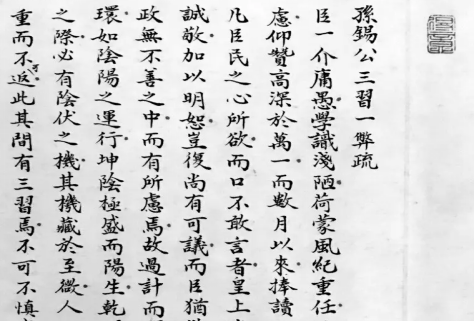 孫錫公三習一弊疏
臣一介庸愚學識淺陋荷蒙風紀重任
慮仰贊高深於萬一而數月以來捧讀
凡臣民之心所欲而口不敢言者皇上
誠敬加以明恕豈復尚有可議而臣猶
政無不善之中而有所慮焉故過計而
環如陰陽之運行坤陰極盛而陽生乾
之際必有陰伏之機其機藏於至微人
重而不可返此其間有三習焉不可不慎